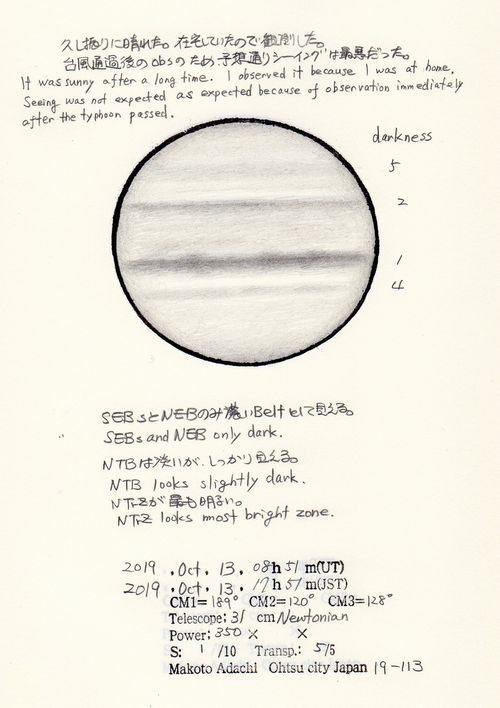 久し振りに晴れた。在宅していたので観測した。
台風通過後のobsのため、予想通りシーイングは最悪だった。
It was sunny after a long time. I observed it because I was at home.
Seeing was not expected as expected because of observation immediately
after the typhoon passed.
darkness
5
2
1
4
SEBsとNEBのみ濃いBeltとして見える。
SEBs and NEB only dark.
NTBは淡いが、しっかり見える。
NTB looks slightly dark.
NTrZが最も明るい。
NTrZ looks most bright zone.
2019 . Oct. 13. 08h 51 m(UT)
2019 . Oct. 13. 17h 51 m(JST)
CM1= 189° CM2= 120° CM3= 128°
Telescope: 31 cm/Newtonian
Power: 350 × ×
S: 1 /10 Transp.: 5/5
Makoto Adachi Ohtsu city Japan 19-113